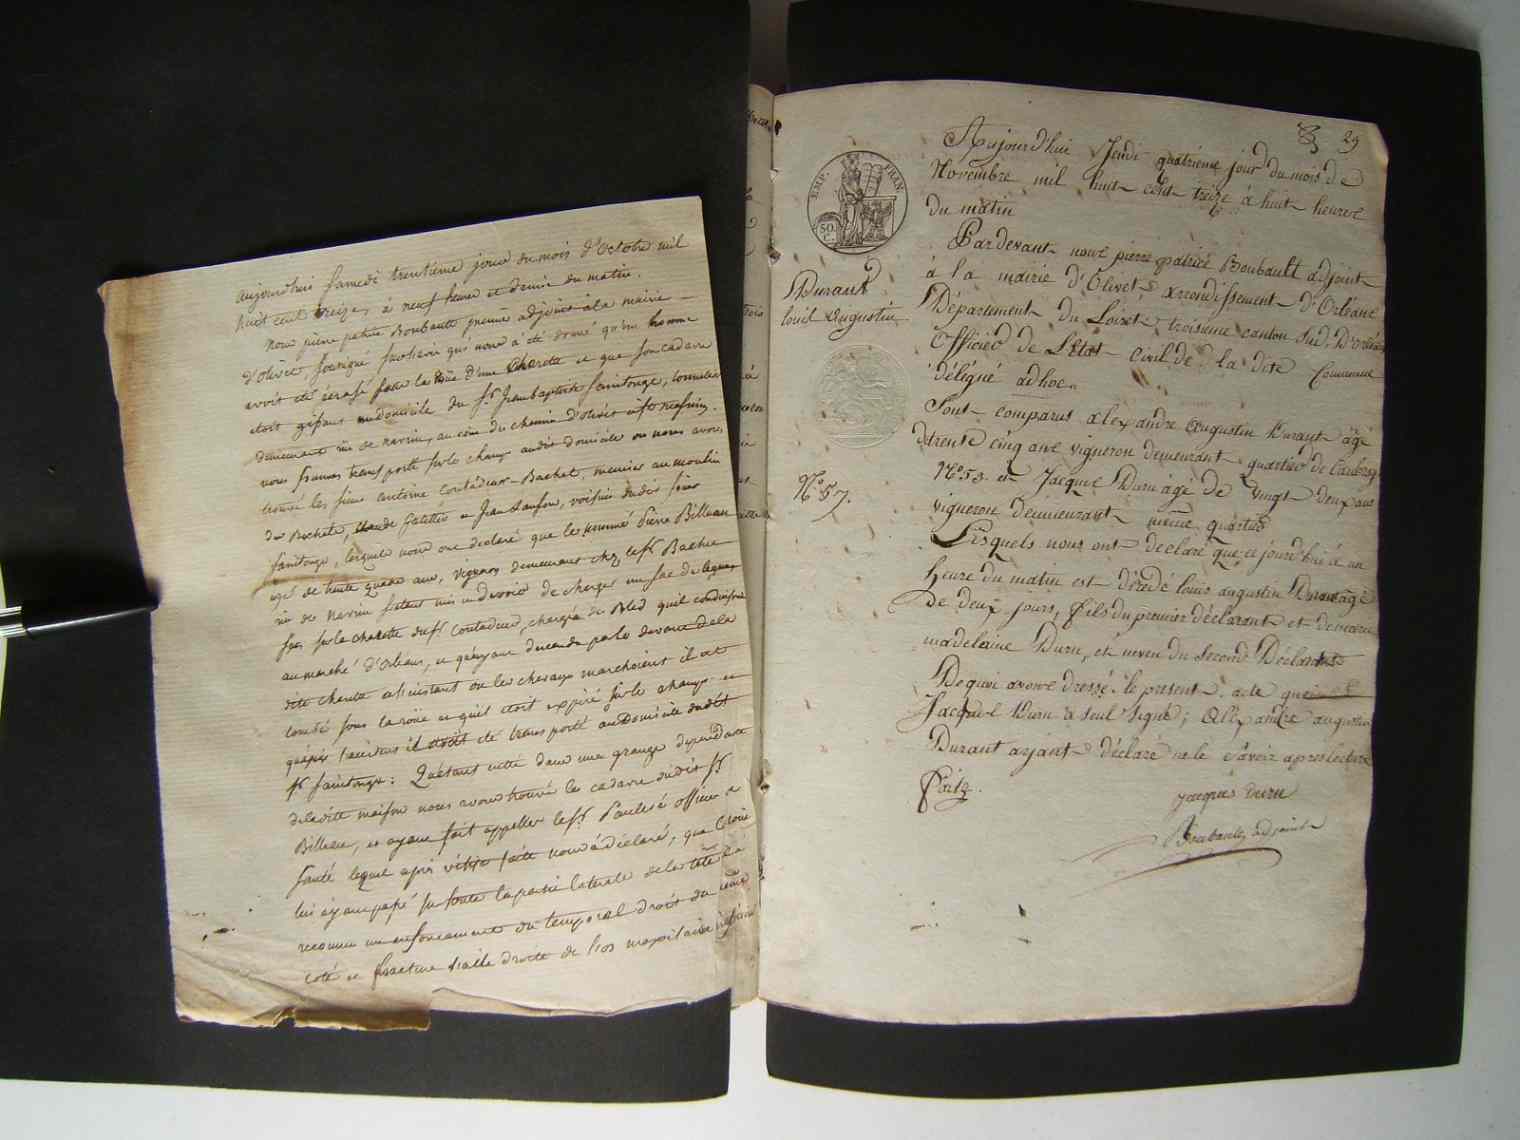 aujourdhui Samedi trentième jour du mois d'octobre mil
huit cent treize, à neuf heure et demie du matin.
nous pierre patrice Boubault premier adjoint à la mairie
d'olivet, soussigné sachant qu'il nous a été donné qu'un homme
avoit été écrasé sous la roüe d'une Charette et que son cadavre
etoit gissant au domicile du Sr. Jean baptiste Saintonge, tonnelier
demeurant rüe de narrin, au coin du chemin d'olivet à St mesmin.
nous sommes transporté sur le champ audit domicile ou nous avons
trouvé les sieurs antoine Coutadeur-Bachet, meunier au moulin
de Bechets, Claude Galittis et Jean Sanson, voisins dudit sieur
Saintonge, lesquels nous ont déclaré que le nommé Pierre Billeau
agé de trente quatre ans, vigneron demeurant chez le Sr. Bachet
rüe de narrin s'etant mis en devoir de charger un sac de
sur la charette du Sr. Coutadeur, chargée de Bled qu'il conduisoit
au marché d'Orléans, et qu'ayant descendu par le devant de la
dite charette à l'instant ou les chevaux marchoient il est
tombé sous la roüe et qu'il etoit expiré sur le champ et
qu'après l'accident il avoit été transporté au Domicile dudit
Sr. Saintonge: Qu'étant entré dans une grange dependante
de la dite maison nous avons trouvé le cadavre du dit Sr.
Billeau, et ayant fait appeller le Sr. officier de
Santé lequel après visite faite nous à déclaré, que la roüe
lui ayant passé sur toute la partie laterale de la tête il a
reconnu un enfoncement du temporal droit du même
coté et fracture l'aille droite de l'os maxilaire inférieur
29
Aujourd'hui Jeudi quatrieme jour du mois de
Novembre mil huit cent treize à huit heures
du matin
EMP. FRAN.
50.
C.
Pardevant nous pierre patrice Boubault adjoint
à la mairie d'Olivet arrondissement d'Orléans
Durant
louis Augustin
Département du Loiret troisieme canton Sud d'Orléans
Officier de L'Etat Civil de la dite Commune
délégué ad hoc.
Sont comparus alexandre Augustin Durant agé
de trente cinq ans vigneron demeurant quartier de Caubray
N.° 57.
N.° 53. et Jacque Duru agé de vingt deux ans
vigneron demeurant même quartier
Lesquels nous ont declaré que ce jourd'hui à un
heure du matin est décedé louis augustin Durant agé
de deux jours, fils du premier déclarant et de marie
madeleine Duru, et neveu du second Déclarant
De quoi avons dressé le present acte que
Jacque Duru a seul signé; Alexandre augustin
Durant ayant déclaré ne le savoir après lecture
faite.
jacques duru
Boubault adjoint